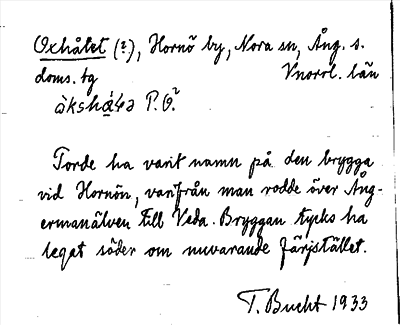 Oxhålet (?), Hornö by, Nora sn, Ång. s.
doms. tg Vnorrl. län
åkshå̀ḷa P. O.²
Torde ha varit namn på den brygga
vid Hornön, varifrån man rodde över Ång-
ermanälven till Veda. Bryggan tycks ha
legat söder om nuvarande färjstället.
T. Bucht 1933